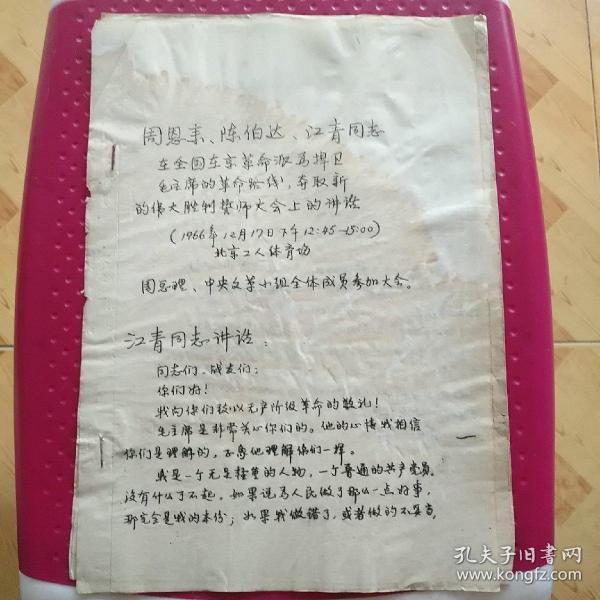 周恩来、陈伯达、江青同志
在全国在京革命派为捍卫
毛主席的革命路线，夺取新
的伟大胜利誓师大会上的讲话
（1966年12月17日下午12:45—15:00）
北京工人体育场
周总理、中央文革小组全体成员参加大会。
江青同志讲话：
同志们，战友们：
你们好！
我向你们致以无产阶级革命的敬礼！
毛主席是非常关心你们的。他的心情我相信
你们是理解的，不 他理解你们一样。
我是一个无足轻重的人物，一个普通的共产党员，
没有什么了不起。如果说为人民做了那么一点好事，
那完全是我的本份；如果我做错了，或者做的不妥当，
一
孔夫子旧书网
www.kongfz.com